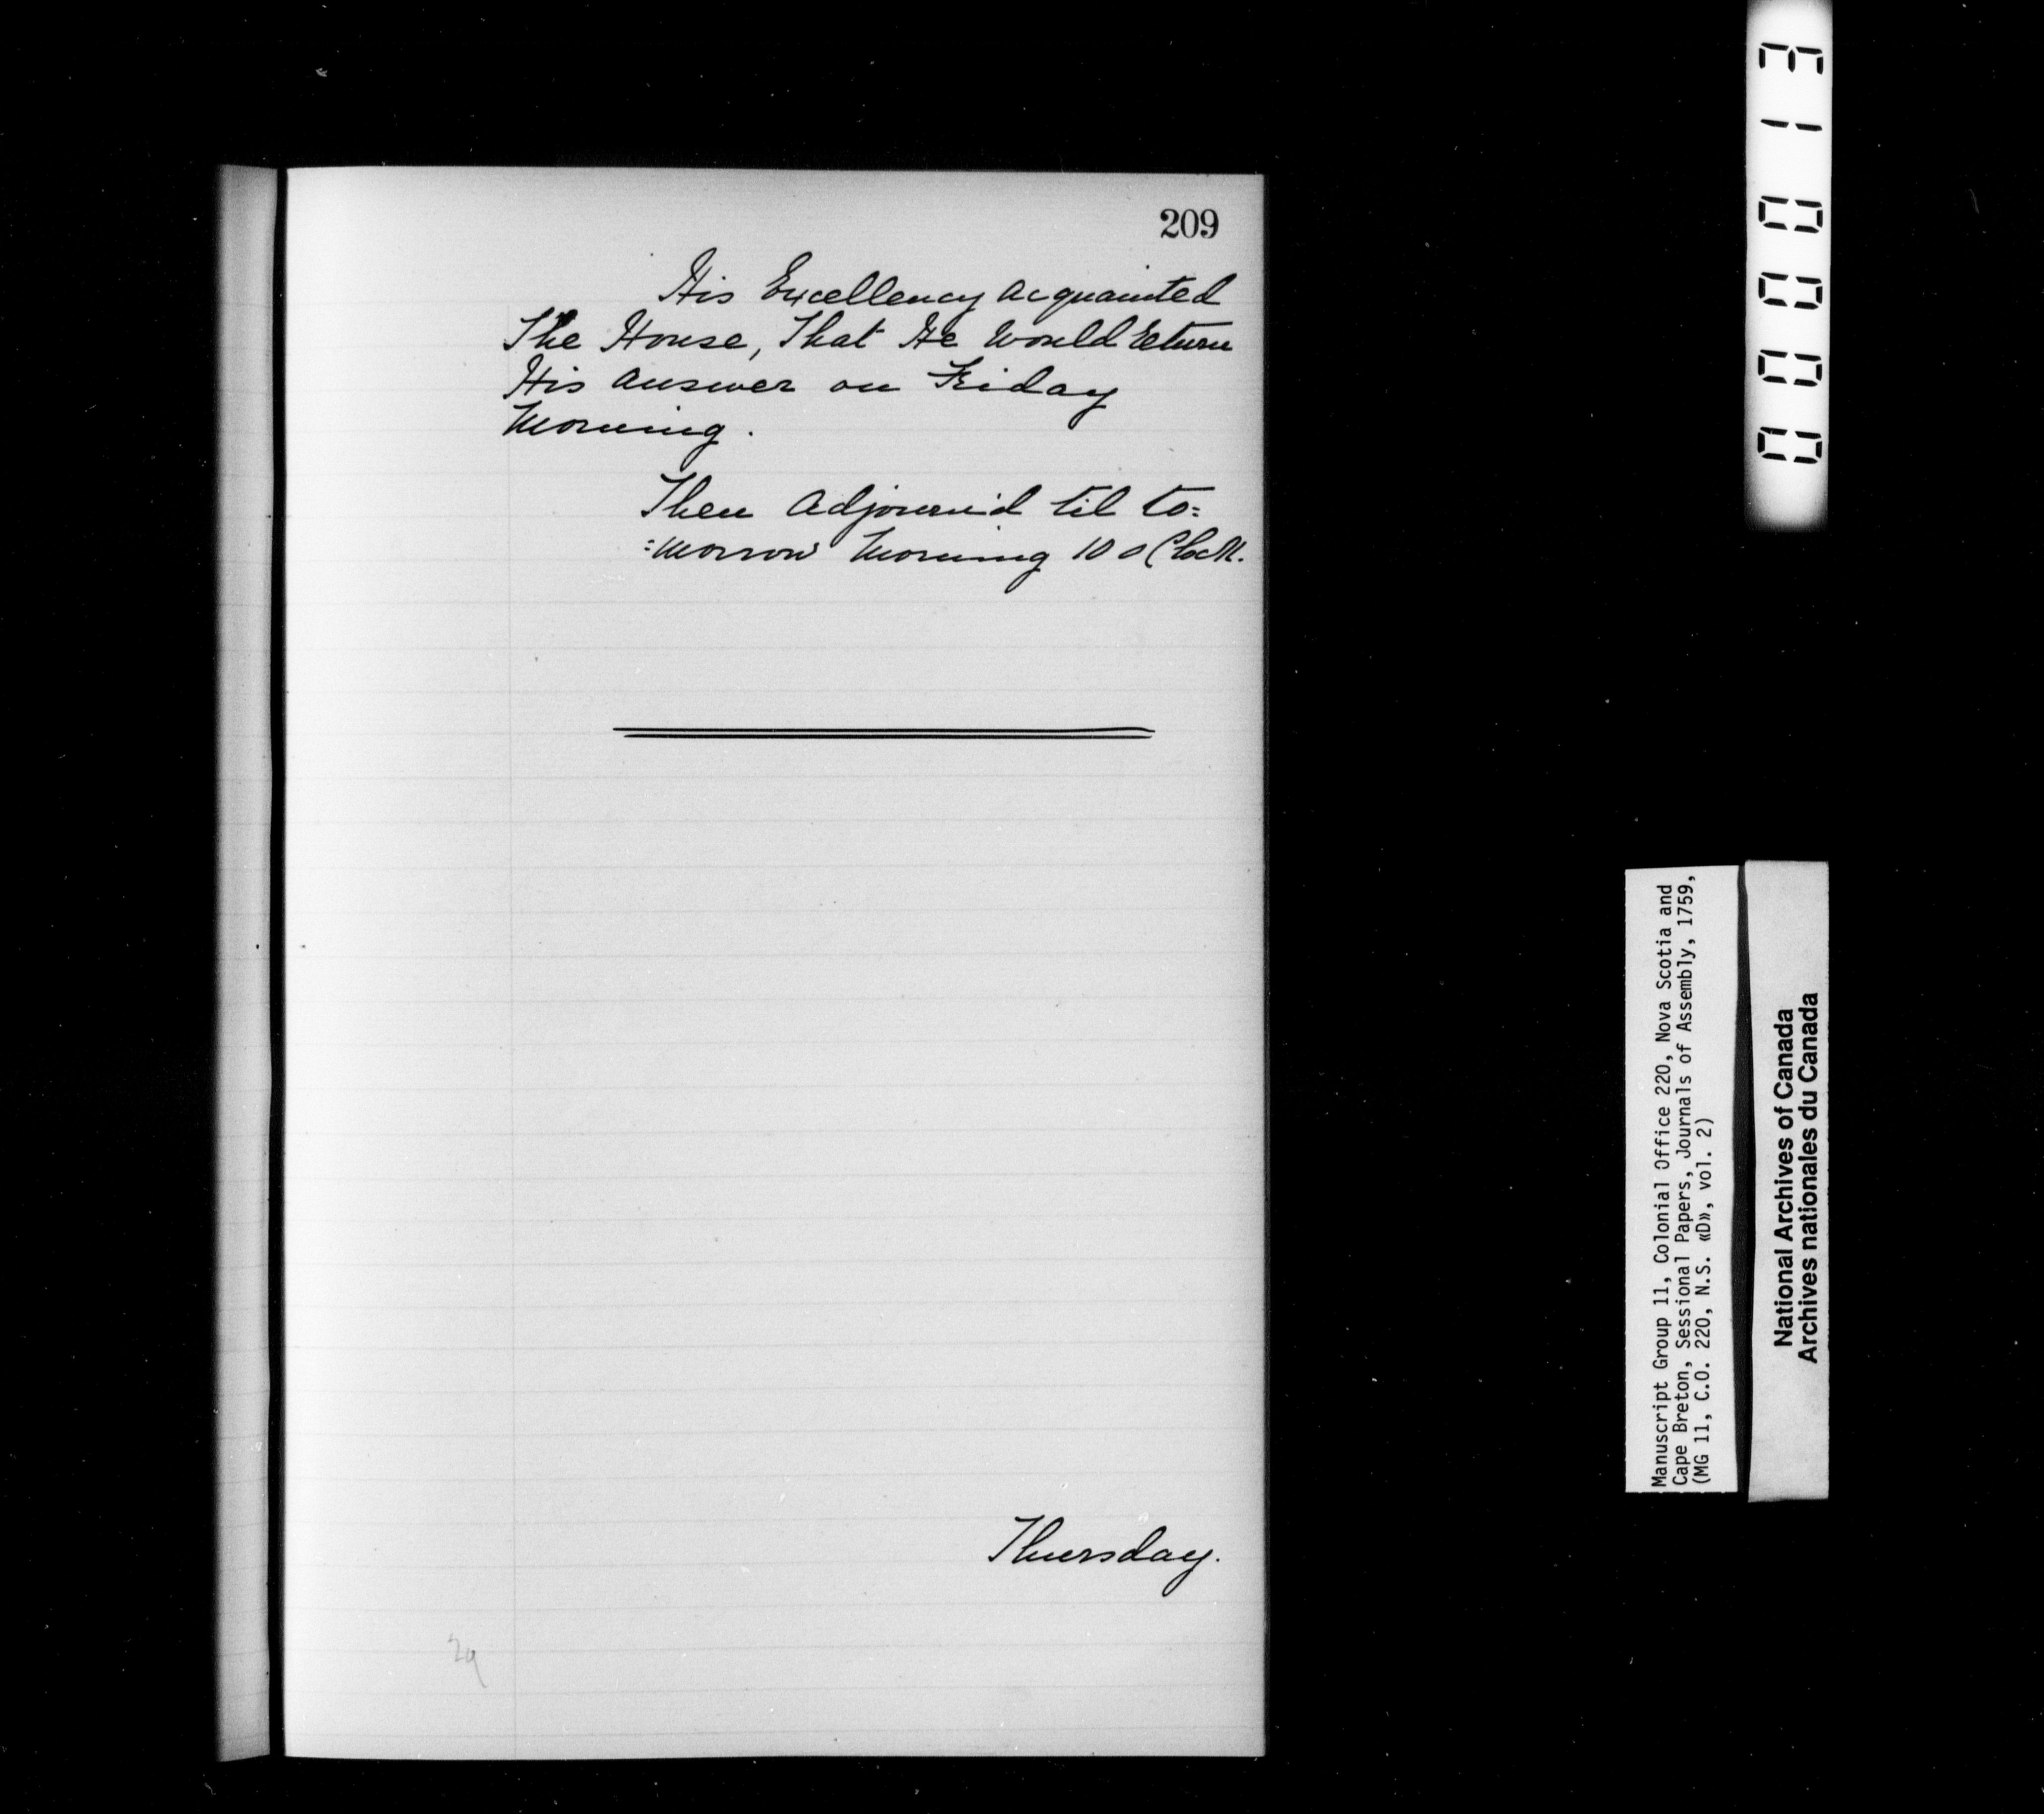 209
His Excellency acquainted
The House, That He would return
His answer on Friday
Morning.
Then Adjourn'd til to=
=morrow Morning 10 o Clock.
Thursday.
29
000013
Manuscript Group 11, Colonial Office 220, Nova Scotia and
Cape Breton, Sessional Papers, Journals of Assembly, 1759,
(MG 11, C.O. 220, N.S. «D», vol. 2)
National Archives of Canada
Archives nationales du Canada